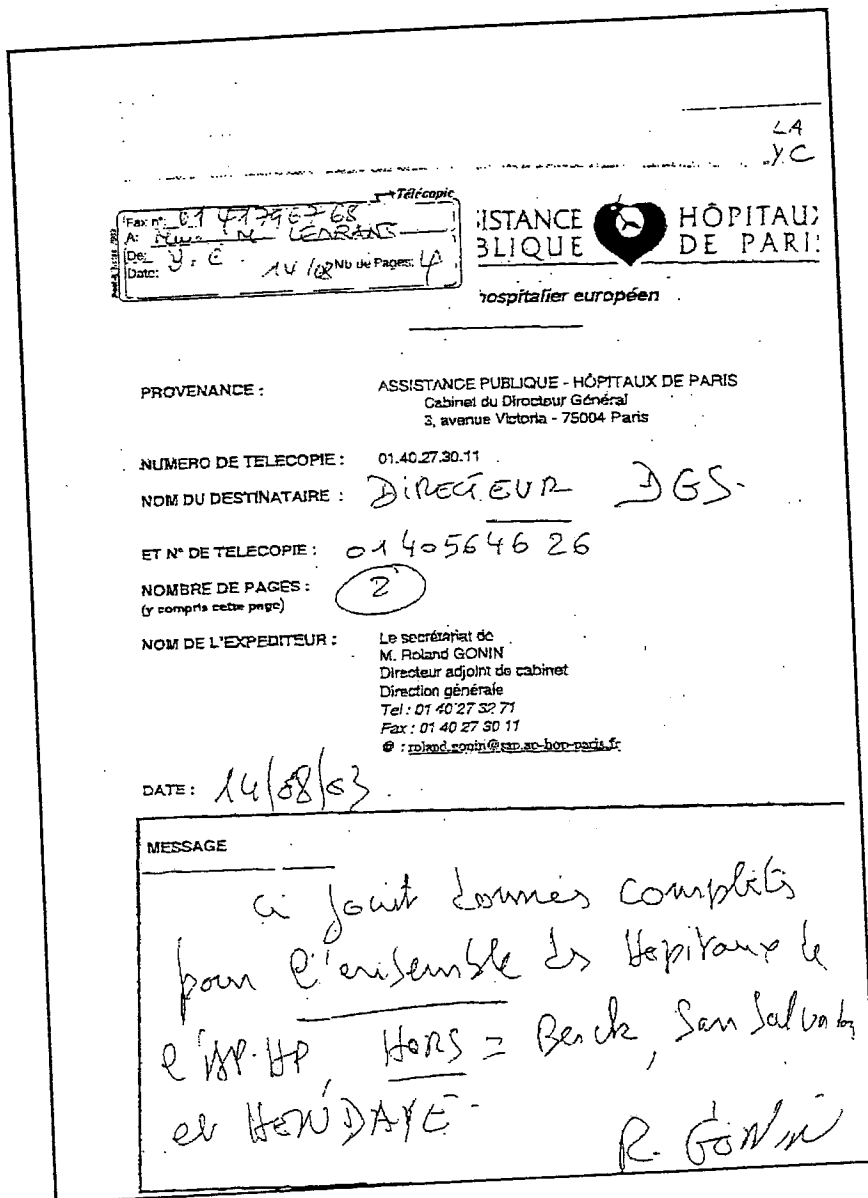 LA
Y.C
Télécopie
Fax n°: 01 41796768
A: M LEDRANS
De: Y. C.
Date: 14/08 Nb de Pages: 4
ISTANCE HÔPITAU
BLIQUE DE PARI
hospitalier européen
PROVENANCE : ASSISTANCE PUBLIQUE - HÔPITAUX DE PARIS
Cabinet du Directeur Général
3, avenue Victoria - 75004 Paris
NUMERO DE TELECOPIE : 01.40.27.30.11
NOM DU DESTINATAIRE : DIRECTEUR DGS-
ET N° DE TELECOPIE : 01 40564626
NOMBRE DE PAGES : 2
(y compris cette page)
NOM DE L'EXPEDITEUR : Le secrétariat de
M. Roland GONIN
Directeur adjoint de cabinet
Direction générale
Tel : 01 40 27 32 71
Fax : 01 40 27 30 11
@ : roland.gonin@sap.ap-hop-paris.fr
DATE : 14/08/03.
MESSAGE
Ci joint données complètes
pour l'ensemble des Hopitaux de
l'AP-HP, HORS = Berck, San Salvador
et HENDAYE-
R. GONIN